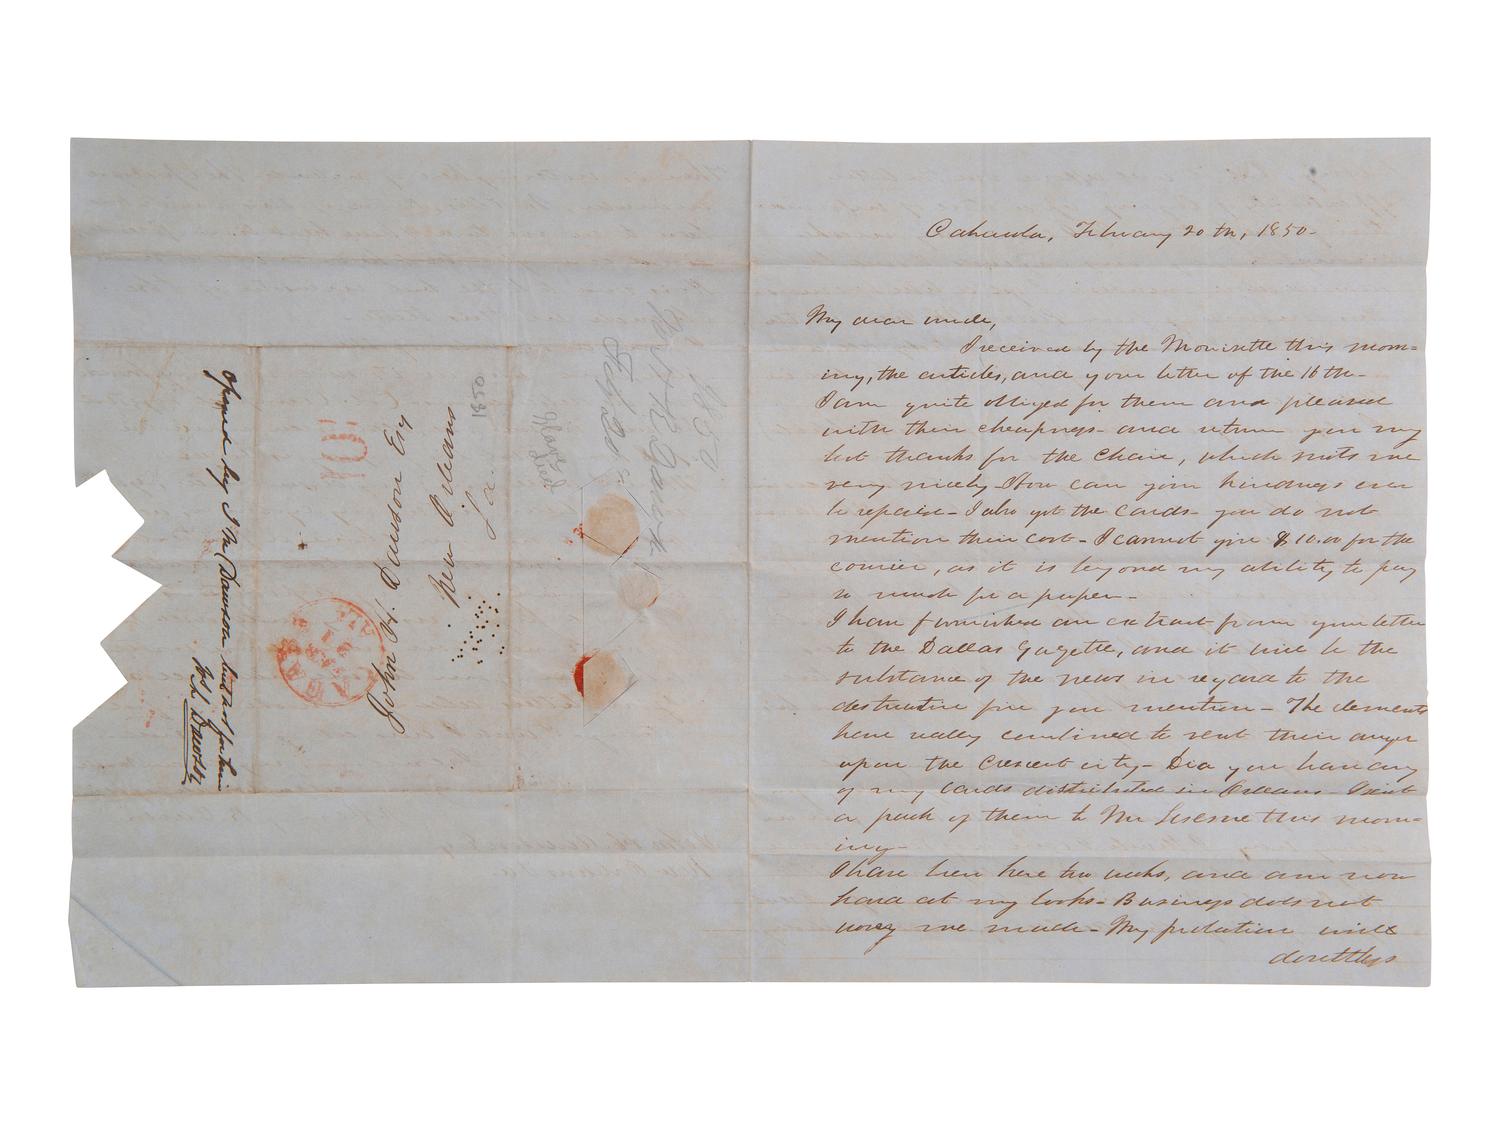 Cahawba, February 20th, 1850.
My dear uncle,
I received by the Monisette this morn=
ing, the articles, and your letter of the 16th.
I am quite obliged for them and pleased
with their cheapness and return you my
best thanks for the Chair, which suits me
very nicely. How can your kindness ever
be repaid. I also got the cards you do not
mention their cost. I cannot give $10.00 for the
courier, as it is beyond my ability to pay
so much for a paper.
I have furnished an extract from your letter
to the Dallas Gazette, and it will be the
substance of the news in regard to the
destructive fire you mention. The elements
have really combined to vent their anger
upon the Crescent city. Did you have any
of my cards distributed in Orleans. I sent
a pack of them to Mr Lesesne this morn=
ing.
I have been here two weeks, and am now
hard at my books. Business does not
worry me much. My probation will
doubtless
1850
Feby 20
Slaves
died
1850
John H. Dawson Esq
New Orleans
La.
10
MAR
ALA
Opened by Jno Dawson but not for him